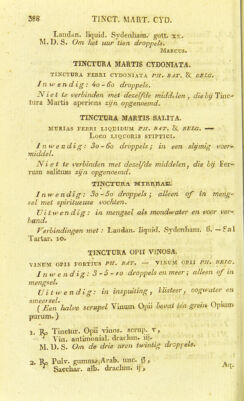 388 TINCT. MART. CYD.
Laudan. liquid. Sydenham. gott. xx.
M. D. S. Om het uur tien droppels.
MARCUS.
TINCTURA MARTIS CYDONIATA.
TINCTURA FERRI CYDONIATA PH. BAT. & BELG.
Inwendig: 40-60 droppels.
Niet te verbinden met dezelfde middelen, die bij Tinc-
tura Martis aperiens zijn opgenoemd.
TINCTURA MARTIS SALITA.
MURIAS FERRI LIQUIDUM PH. BAT. & BELG. —
LOCO LIQUORIS STIPTICI.
Inwendig: 30-60 droppels; in een slijmig voer-
middel.
Niet te verbinden met dezelfde middelen, die bij Fer-
rum salitum zijn opgenoemd.
TINCTURA MYRRHAE.
Inwendig: 30-50 droppels; alleen of in meng-
sel met spiritueuse vochten.
Uitwendig: in mengsel als mondwater en voor ver-
band.
Verbindingen met: Laudan. liquid. Sydenham. 6. — Sal
Tartar. 10.
TINCTURA OPII VINOSA.
VINUM OPII FORTIUS PH. BAT. — VINUM OPII PH. BELG.
Inwendig: 3-5-10 droppels en meer; alleen of in
mengsel.
Uitwendig: in inspuiting, klisteer, oogwater en
smeersel.
(Een halve scrupel Vinum Opii bevat één grein Opium
purum.)
1. ℞ Tinctur. Opii vinos. scrup. v,
Vin. antimonial. drachm. iij.
M. D. S. Om de drie uren twintig droppels.
2. ℞ Pulv. gummi Arab. unc. ß,
Sacchar. alb. drachm. ij,
Aq.